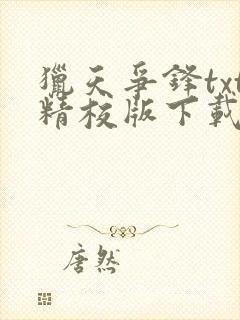 獵天爭鋒txt
精校版下載
唐然